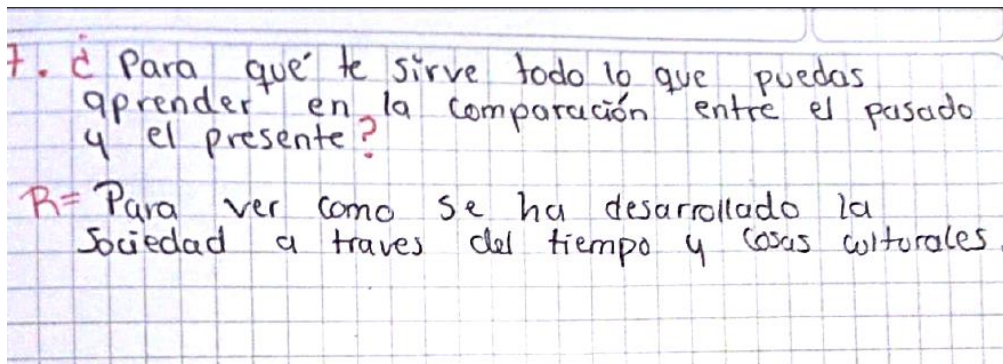 7. ¿Para qué te sirve todo lo que puedas
aprender en la comparación entre el pasado
y el presente?
R= Para ver como se ha desarrollado la
Sociedad a traves del tiempo y cosas culturales.